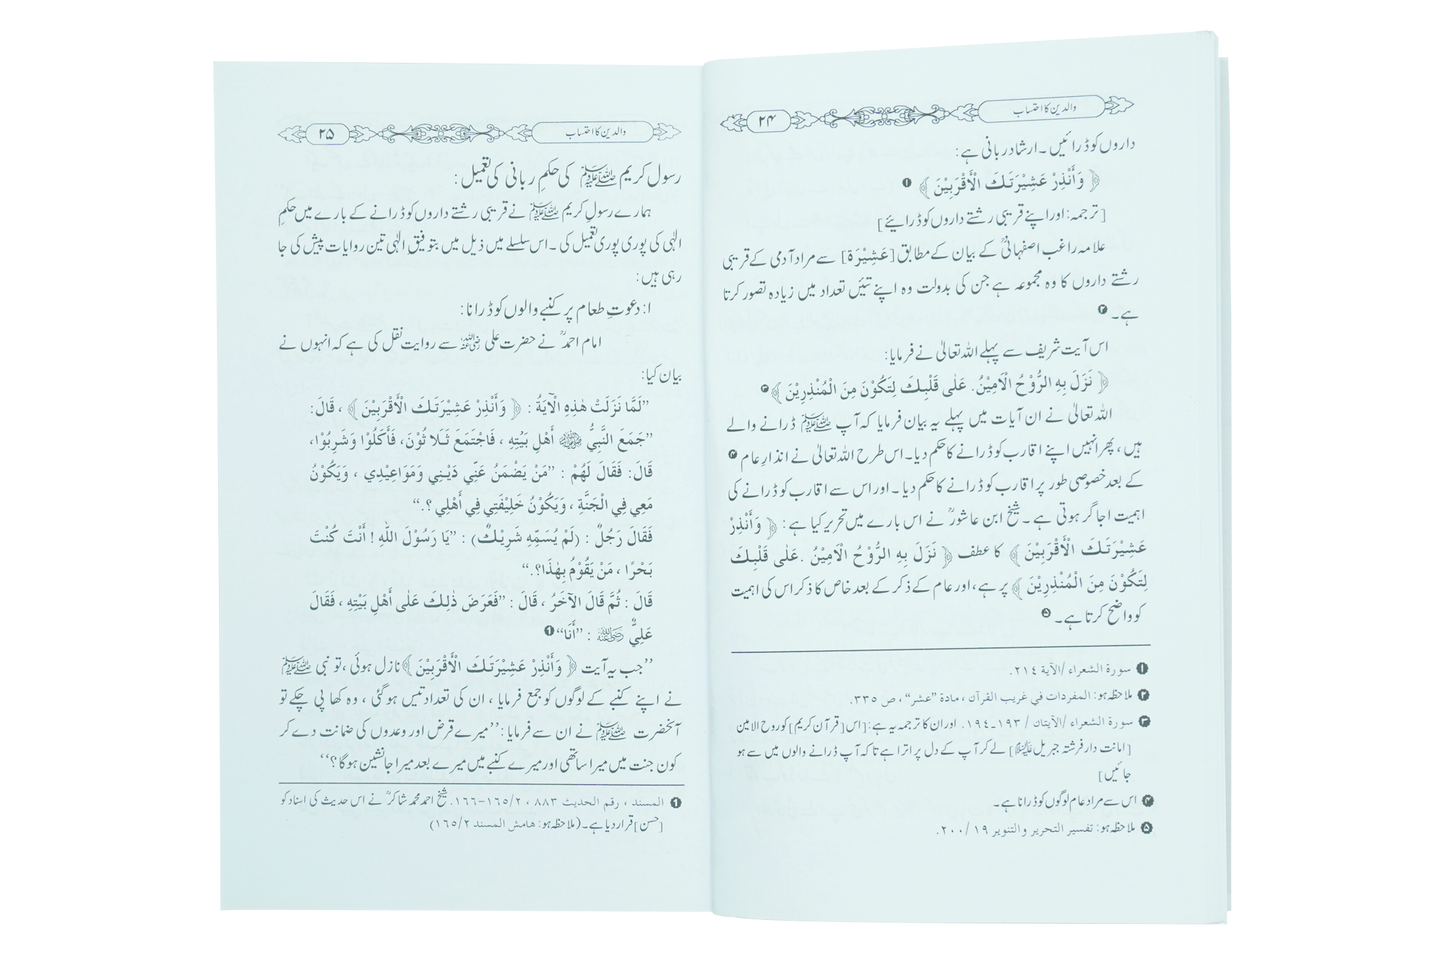 والدین کا احتساب
۲۴
داروں کو ڈرائیں۔ ارشاد ربانی ہے:
﴿ وَأَنْذِرْ عَشِيْرَتَكَ الْأَقْرَبِيْنَ ﴾ ❶
[ترجمہ: اور اپنے قریبی رشتے داروں کو ڈرائیے]
علامہ راغب اصفہانیؒ کے بیان کے مطابق [عَشِيْرَة] سے مراد آدمی کے قریبی
رشتے داروں کا وہ مجموعہ ہے جن کی بدولت وہ اپنے تئیں تعداد میں زیادہ تصور کرتا
ہے۔ ❷
اس آیت شریف سے پہلے اللہ تعالیٰ نے فرمایا:
﴿ نَزَلَ بِهِ الرُّوْحُ الْأَمِيْنُ. عَلٰى قَلْبِكَ لِتَكُوْنَ مِنَ الْمُنْذِرِيْنَ ﴾ ❸
اللہ تعالیٰ نے ان آیات میں پہلے یہ بیان فرمایا کہ آپ ﷺ ڈرانے والے
ہیں، پھر انہیں اپنے اقارب کو ڈرانے کا حکم دیا۔ اس طرح اللہ تعالیٰ نے انذارِ عام ❹
کے بعد خصوصی طور پر اقارب کو ڈرانے کا حکم دیا۔ اور اس سے اقارب کو ڈرانے کی
اہمیت اجاگر ہوتی ہے۔ شیخ ابن عاشورؒ نے اس بارے میں تحریر کیا ہے: ﴿ وَأَنْذِرْ
عَشِيْرَتَكَ الْأَقْرَبِيْنَ ﴾ کا عطف ﴿ نَزَلَ بِهِ الرُّوْحُ الْأَمِيْنُ .عَلٰى قَلْبِكَ
لِتَكُوْنَ مِنَ الْمُنْذِرِيْنَ ﴾ پر ہے، اور عام کے ذکر کے بعد خاص کا ذکر اس کی اہمیت
کو واضح کرتا ہے۔ ❺
❶ سورة الشعراء /الآية ٢١٤.
❷ ملاحظہ ہو: المفردات في غريب القرآن ، مادة ”عشر“ ، ص ٣٣٥.
❸ سورة الشعراء /الآيتان / ١٩٣-١٩٤. اور ان کا ترجمہ یہ ہے: [اس [قرآن کریم] کو روح الامین
[امانت دار فرشتہ جبریل علیہ السلام] لے کر آپ کے دل پر اترا ہے تاکہ آپ ڈرانے والوں میں سے ہو
جائیں]
❹ اس سے مراد عام لوگوں کو ڈرانا ہے۔
❺ ملاحظہ ہو: تفسير التحرير والتنوير ١٩ /٢٠٠.
والدین کا احتساب
۲۵
رسول کریم ﷺ کی حکمِ ربانی کی تعمیل:
ہمارے رسولِ کریم ﷺ نے قریبی رشتے داروں کو ڈرانے کے بارے میں حکمِ
الٰہی کی پوری پوری تعمیل کی۔ اس سلسلے میں ذیل میں بتوفیقِ الٰہی تین روایات پیش کی جا
رہی ہیں:
۱: دعوتِ طعام پر کنبے والوں کو ڈرانا:
امام احمدؒ نے حضرت علی رضی اللہ عنہ سے روایت نقل کی ہے کہ انہوں نے
بیان کیا:
”لَمَّا نَزَلَتْ هٰذِهِ الْآيَةُ : ﴿ وَأَنْذِرْ عَشِيْرَتَكَ الْأَقْرَبِيْنَ ﴾ ، قَالَ:
”جَمَعَ النَّبِيُّ ﷺ أَهْلَ بَيْتِهِ ، فَاجْتَمَعَ ثَلَاثُوْنَ، فَأَكَلُوْا وَشَرِبُوْا،
قَالَ: فَقَالَ لَهُمْ : ”مَنْ يَضْمَنُ عَنِّي دَيْنِي وَمَوَاعِيْدِي ، وَيَكُوْنُ
مَعِي فِي الْجَنَّةِ ، وَيَكُوْنُ خَلِيْفَتِي فِي أَهْلِي ؟.“
فَقَالَ رَجُلٌ : (لَمْ يُسَمِّهِ شَرِيْكٌ) : ”يَا رَسُوْلَ اللهِ ! أَنْتَ كُنْتَ
بَحْرًا ، مَنْ يَقُوْمُ بِهٰذَا؟.“
قَالَ : ثُمَّ قَالَ الآخَرُ ، قَالَ : ”فَعَرَضَ ذٰلِكَ عَلٰى أَهْلِ بَيْتِهِ ، فَقَالَ
عَلِيٌّ رضی اللہ عنہ : ”أَنَا“ ❶
’’جب یہ آیت ﴿ وَأَنْذِرْ عَشِيْرَتَكَ الْأَقْرَبِيْنَ ﴾ نازل ہوئی، تو نبی ﷺ
نے اپنے کنبے کے لوگوں کو جمع فرمایا، ان کی تعداد تیس ہو گئی، وہ کھا پی چکے تو
آنحضرت ﷺ نے ان سے فرمایا: ’’میرے قرض اور وعدوں کی ضمانت دے کر
کون جنت میں میرا ساتھی اور میرے کنبے میں میرے بعد میرا جانشین ہوگا؟‘‘
❶ المسند ، رقم الحديث ٨٨٣ ، ٢/١٦٥-١٦٦. شیخ احمد محمد شاکرؒ نے اس حدیث کی اسناد کو
[حسن] قرار دیا ہے۔ (ملاحظہ ہو: هامش المسند ٢/١٦٥)